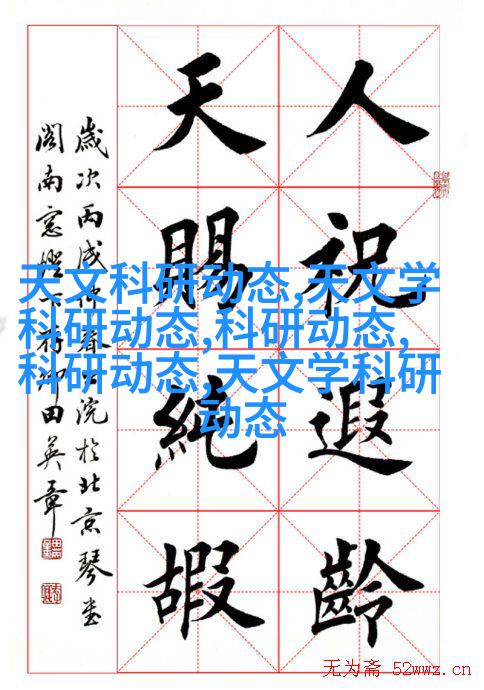 人祝遐齡
天賜純嘏
歲次丙戌仲春浣於北京琴堂
閣南窓燈下田英章
天文科研动态,天文学
科研动态,科研动态,
科研动态,天文学科研
动态
无为斋 52wwz.cn